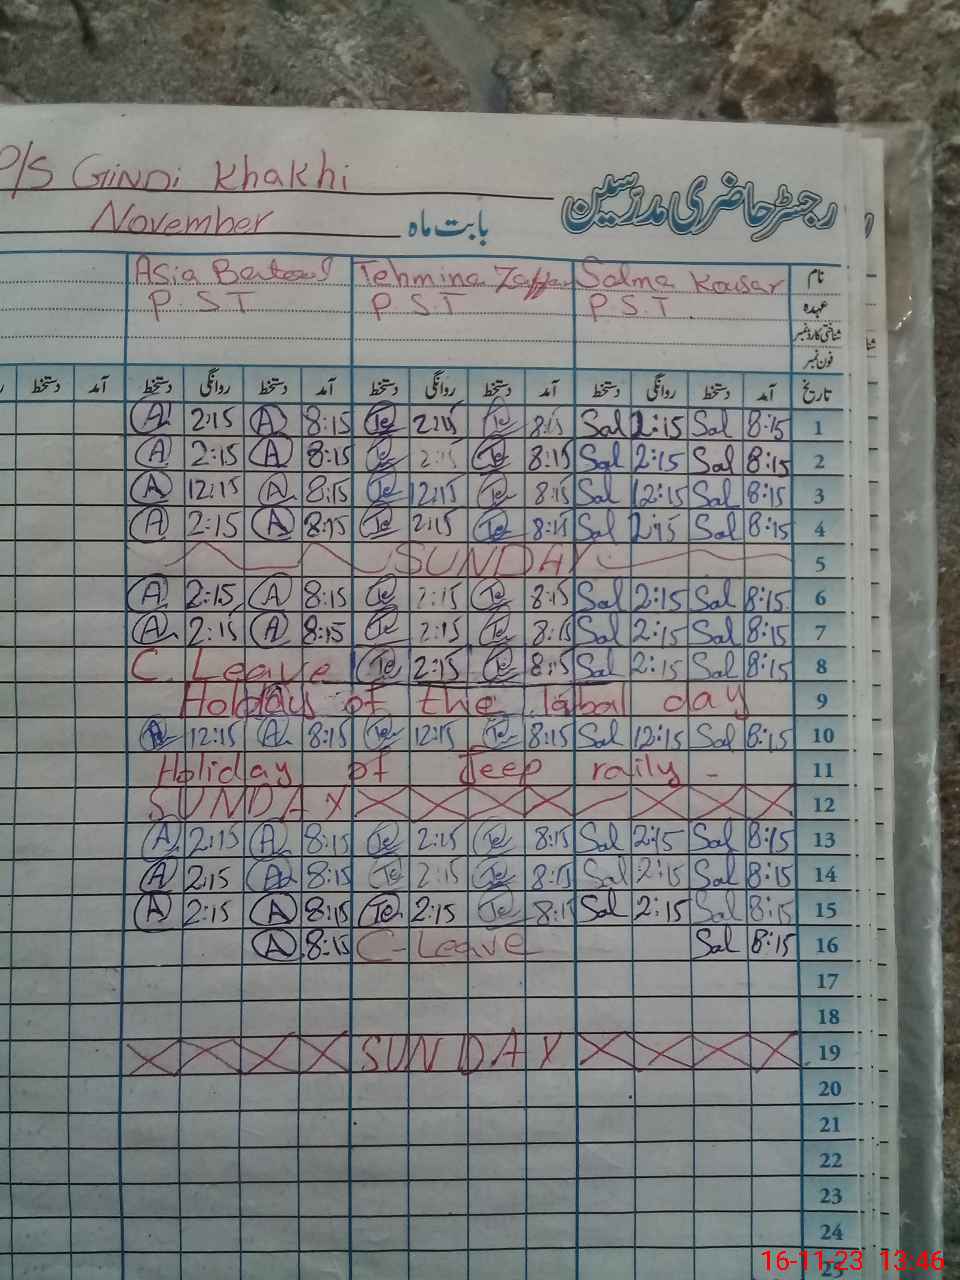 P/S GiNDi Khakhi
رجسٹر حاضری مدرسین
بابت ماہ November
نام Salma Kousar Tehmina Zaffar Asia
عہدہ P.S.T. P.S.T P S T
شناختی کارڈ نمبر
فون نمبر
تاریخ آمد دستخط روانگی دستخط آمد دستخط روانگی دستخط آمد دستخط روانگی دستخط آمد دستخط
1 8:15 Sal 2:15 Sal 8:15 Te 2:15 Te 8:15 A 2:15 A
2 8:15 Sal 2:15 Sal 8:15 Te 2:15 Te 8:15 A 2:15 A
3 8:15 Sal 12:15 Sal 8:15 Te 12:15 Te 8:15 A 12:15 A
4 8:15 Sal 2:15 Sal 8:15 Te 2:15 Te 8:15 A 2:15 A
5 SUNDAY
6 8:15 Sal 2:15 Sal 8:15 Te 2:15 Te 8:15 A 2:15 A
7 8:15 Sal 2:15 Sal 8:15 Te 2:15 Te 8:15 A 2:15 A
8 8:15 Sal 2:15 Sal 8:15 Te 2:15 Te C. Leave
9 Holidays of the labal day
10 8:15 Sal 12:15 Sal 8:15 Te 12:15 Te 8:15 A 12:15 A
11 Holiday of Jeep raily -
12 SUNDAY
13 8:15 Sal 2:15 Sal 8:15 Te 2:15 Te 8:15 A 2:15 A
14 8:15 Sal 2:15 Sal 8:15 Te 2:15 Te 8:15 A 2:15 A
15 8:15 Sal 2:15 Sal 8:15 Te 2:15 Te 8:15 A 2:15 A
16 8:15 Sal C-Leave 8:15 A
17
18
19 SUNDAY
20
21
22
23
24
25
16-11-23 13:46